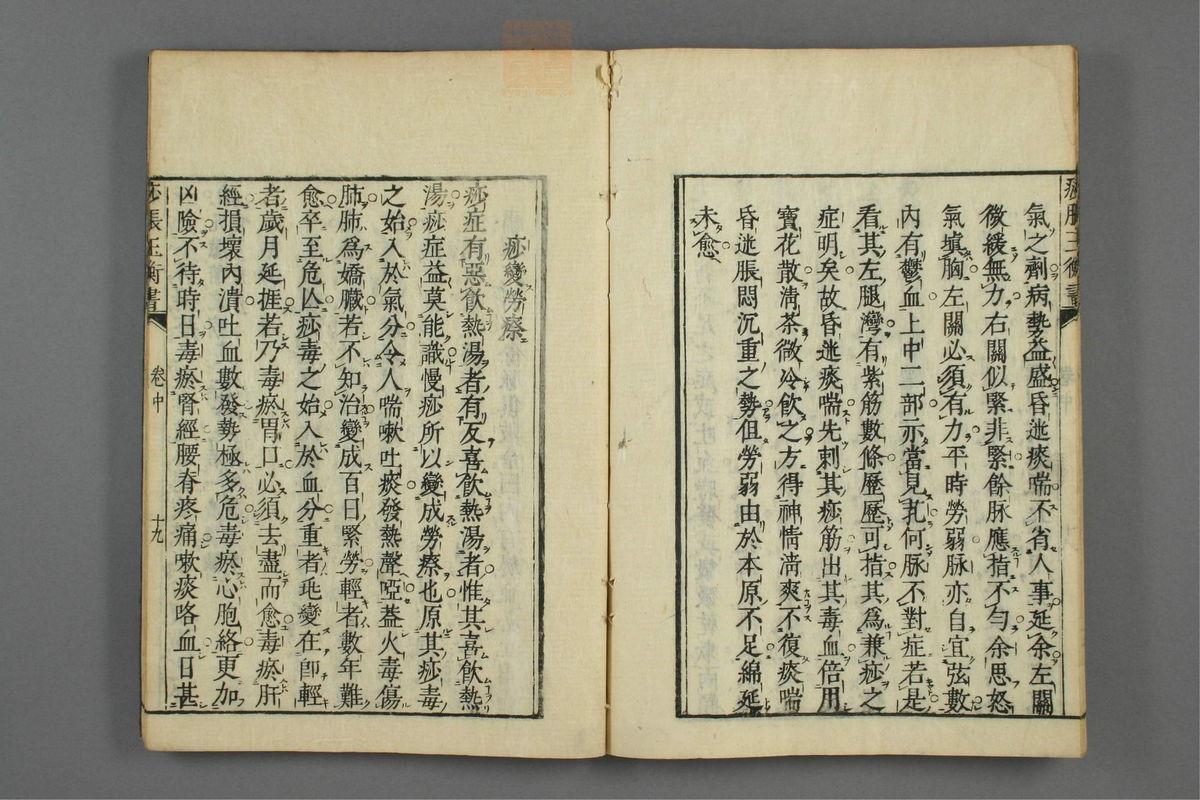 氣之劑病勢益盛昏迷痰喘不省人事延余左關
微緩無力右關似緊非緊餘脉應指不勻余思怒
氣塡胸左關必須有力平時勞弱脉亦自宜弦數
內有鬱血上中二部亦當見芤何脉不對症若是
看其左腿灣有紫筋數條歷歷可指其爲兼痧之
症明矣故昏迷痰喘先刺其痧筋出其毒血倍用
寶花散淸茶微冷飮之方得神情淸爽不復痰喘
昏迷脹悶沉重之勢但勞弱由於本原不足綿延
未愈
痧脹玉衡書
痧變勞瘵
痧症有惡飮熱湯者有反喜飮熱湯者惟其喜飮熱
湯痧症益莫能識慢痧所以變成勞瘵也原其痧毒
之始入於氣分令人喘嗽吐痰發熱聲啞葢火毒傷
肺肺爲嬌臟若不知治變成百日緊勞輕者數年難
愈卒至危亾痧毒之始入於血分重者兆變在卽輕
者歲月延捱若乃毒瘀胃口必須去盡而愈毒瘀肝
經損壞內潰吐血數發勢極多危毒瘀心胞絡更加
凶險不待時日毒瘀腎經腰脊疼痛嗽痰咯血日甚
痧脹玉衡書
卷中
十九